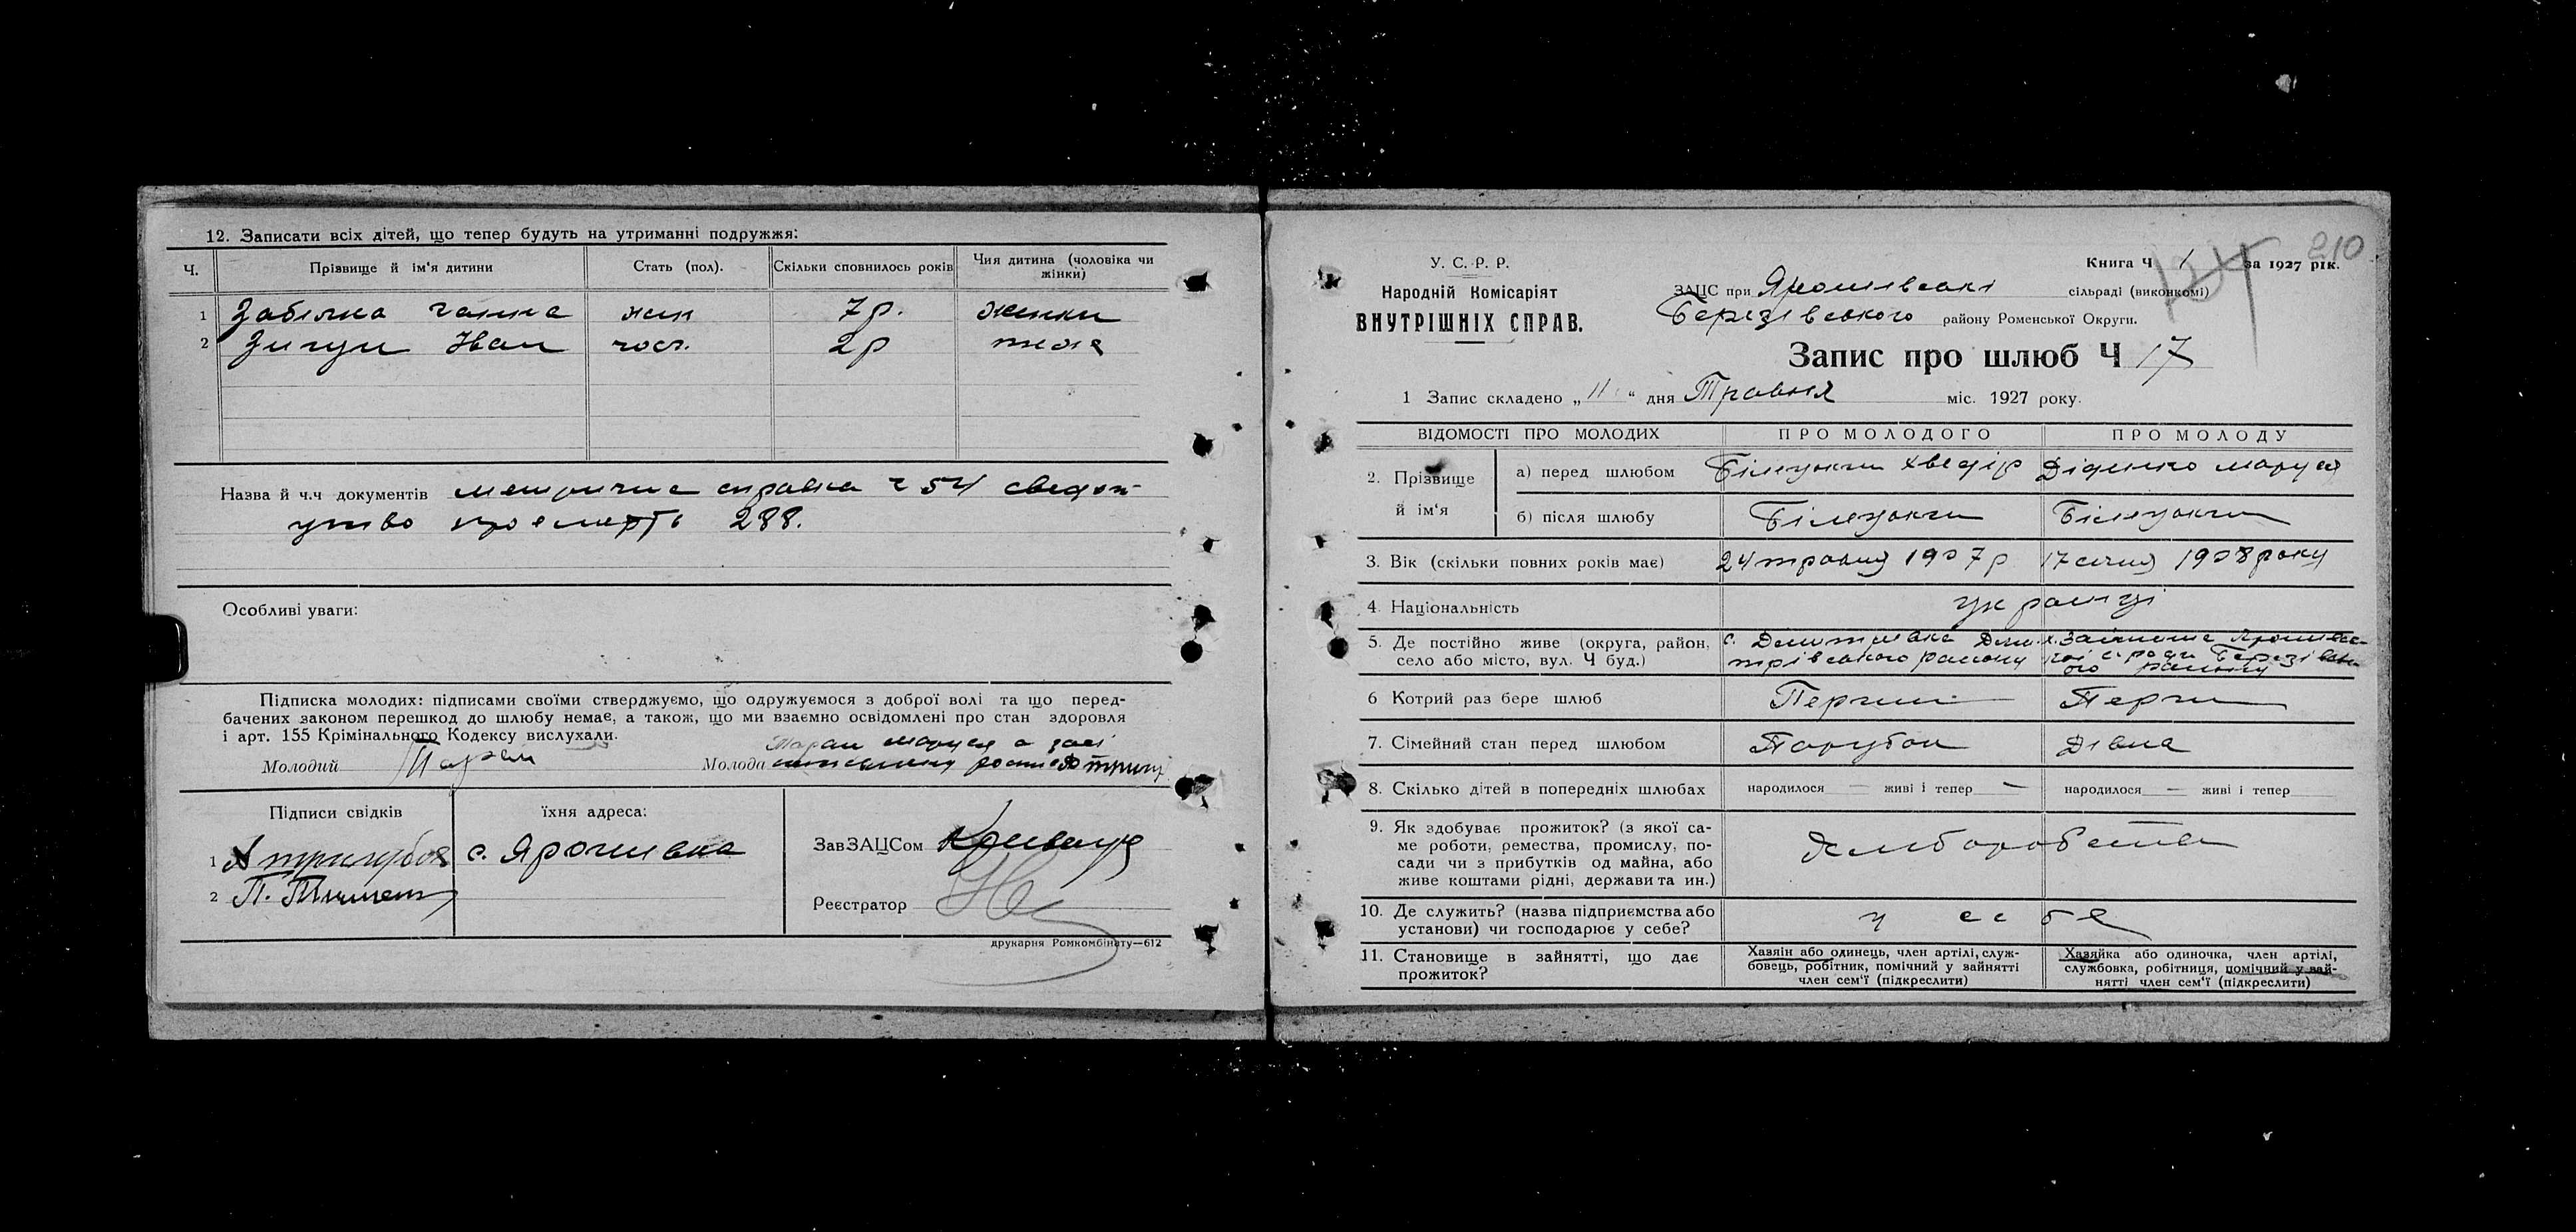 12. Записати всіх дітей, що тепер будуть на утриманні подружжя:
Ч. Прізвище й ім'я дитини Стать (пол). Скільки сповнилось років Чия дитина (чоловіка чи жінки)
1 Забілка Ганна жін 7 р. жінки
2 Зигун Іван чол. 2 р
Назва й ч.ч документів метрична справка ч 54 сведоц-
цтво про смерть 288.
Особливі уваги:
Підписка молодих: підписами своїми стверджуємо, що одружуємося з доброї волі та що перед-
бачених законом перешкод до шлюбу немає, а також, що ми взаємно освідомлені про стан здоровля
і арт. 155 Крімінального Кодексу вислухали.
Молодий Таран Молода Таран Маруся а за неї
Підписи свідків їхня адреса: ЗавЗАЦСом
1 с. Ярошівка
2 П.
Реєстратор
друкарня Ромкомбінату—612
210
У. С. Р. Р.
Народній Комісаріят
ВНУТРІШНІХ СПРАВ.
Книга Ч 1 за 1927 рік.
ЗАЦС при Ярошівські сільраді (виконкомі)
Березівського району Роменської Округи.
Запис про шлюб Ч 17
1 Запис складено „11“ дня Травня міс. 1927 року.
ВІДОМОСТІ ПРО МОЛОДИХ ПРО МОЛОДОГО ПРО МОЛОДУ
2. Прізвище й ім'я
а) перед шлюбом Білецький Хведір Діденко Маруся
б) після шлюбу Білецький Білецький
3. Вік (скільки повних років має) 24 травня 1907 р 17 січня 1908 року
4. Національність українці
5. Де постійно живе (округа, район, село або місто, вул. Ч буд.) с. Дмитрівка Дми-
трівського району
Березівсь-
ого району
6 Котрий раз бере шлюб Перший Перши
7. Сімейний стан перед шлюбом Парубок Дівка
8. Скілько дітей в попередніх шлюбах народилося — живі і тепер — народилося — живі і тепер
9. Як здобуває прожиток? (з якої са-
ме роботи, ремества, промислу, по-
сади чи з прибутків од майна, або
живе коштами рідні, держави та ин.) хліборобства
10. Де служить? (назва підприємства або
установи) чи господарює у себе? у себе
11. Становище в зайнятті, що дає
прожиток?
Хазяїн або одинець, член артілі, служ-
бовець, робітник, помічний у зайнятті
член сем'ї (підкреслити)
Хазяйка або одиночка, член артілі,
службовка, робітниця, помічний у зай-
нятті член сем'ї (підкреслити)